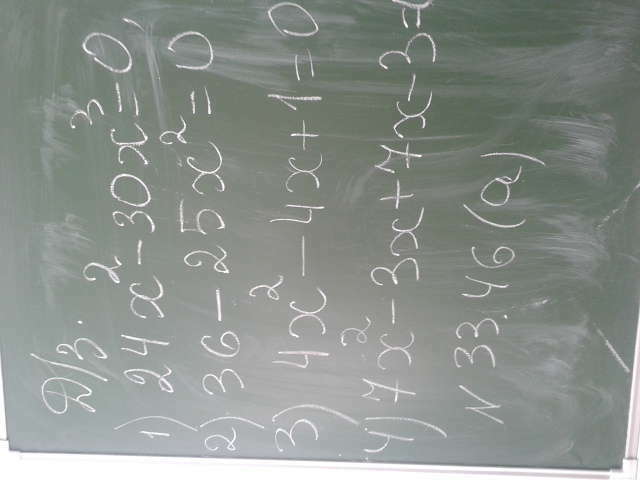 Д/З.
1) 24x² - 30x³ = 0
2) 36 - 25x² = 0
3) 4x² - 4x + 1 = 0
4) 7x² - 3x + 7x - 3 =
N 33.46 (a)